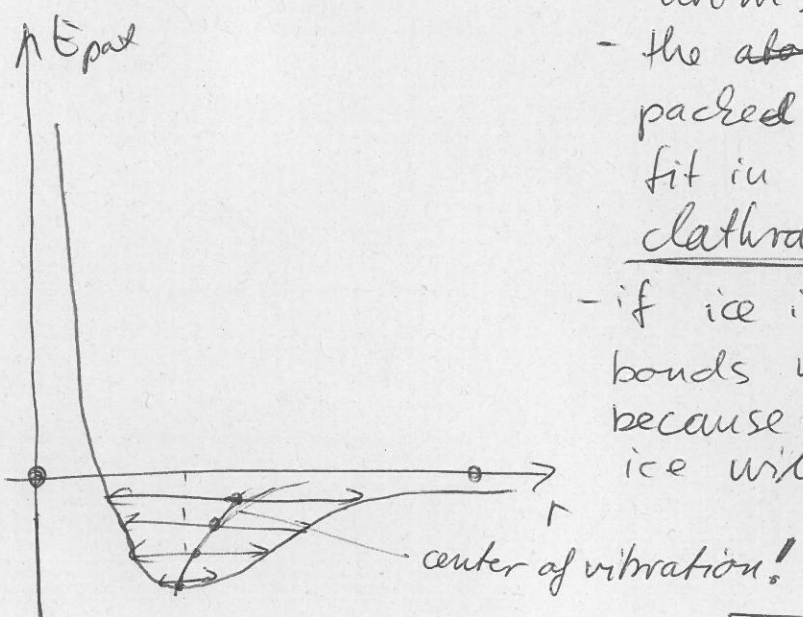 E pot
- the
packed
fit in
clathra
- if ice i
bonds
because
ice wi
r
center of vibration!